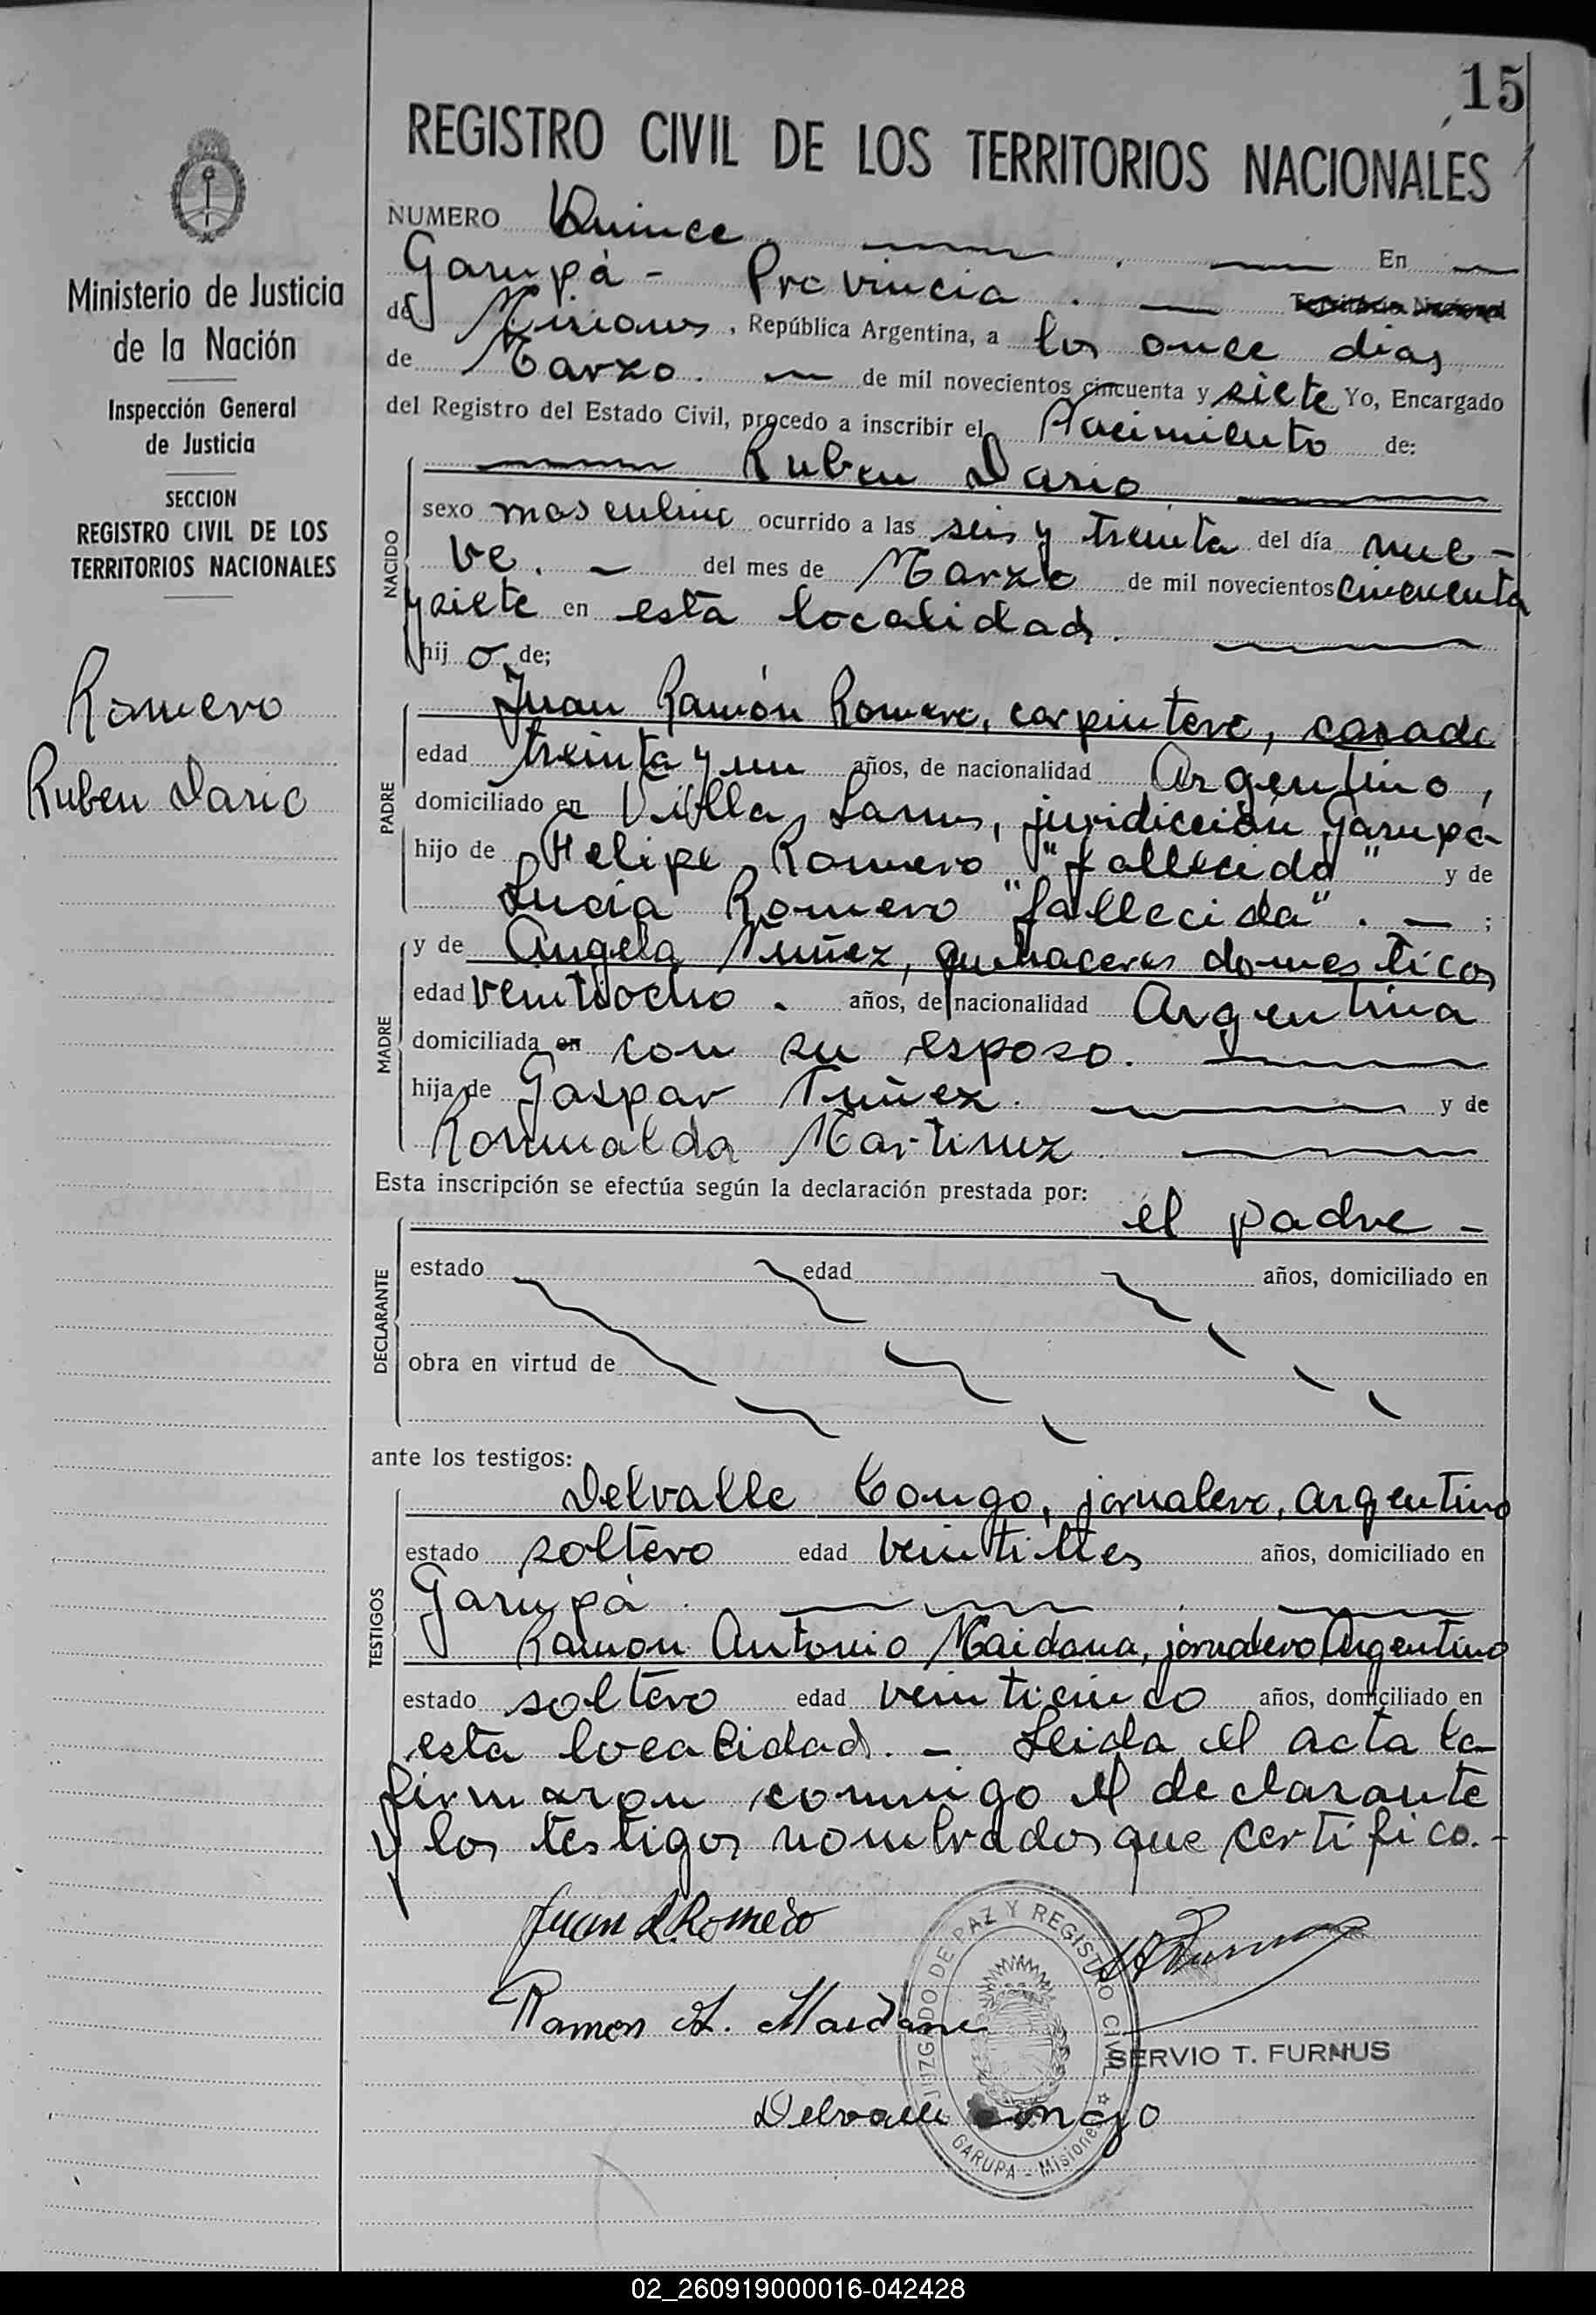 15
REGISTRO CIVIL DE LOS TERRITORIOS NACIONALES
Ministerio de Justicia
de la Nación
Inspección General
de Justicia
SECCION
REGISTRO CIVIL DE LOS
TERRITORIOS NACIONALES
Romero
Ruben Dario
NUMERO Quince. En
Garupá - Provincia. Territorio Nacional
de Misiones, República Argentina, a los once dias
de Marzo. de mil novecientos cincuenta y siete Yo, Encargado
del Registro del Estado Civil, procedo a inscribir el Nacimiento de:
NACIDO
Ruben Dario
sexo masculino ocurrido a las seis y treinta del día nue-
ve. - del mes de Marzo de mil novecientos cincuenta
y siete en esta localidad.
hijo de;
PADRE
Juan Ramón Romero, carpintero, casado
edad treinta y un años, de nacionalidad Argentino,
domiciliado en Villa Lanus, juridicción Garupá
hijo de Felipe Romero "fallecido" y de
Lucia Romero "fallecida". - ;
MADRE
y de Angela Nuñez, quehaceres domesticos
edad veintiocho. años, de nacionalidad Argentina
domiciliada en con su esposo.
hija de Gaspar Nuñez. y de
Romualda Martinez
Esta inscripción se efectúa según la declaración prestada por:
el padre -
DECLARANTE
estado edad años, domiciliado en
obra en virtud de
ante los testigos:
TESTIGOS
Delvalle Congo, jornalero, argentino
estado soltero edad veintitres años, domiciliado en
Garupá.
Ramon Antonio Maidana, jornalero Argentino
estado soltero edad veinticinco años, domiciliado en
esta localidad. - Leida el acta la
firmaron conmigo el declarante
y los testigos nombrados que certifico. -
Juan R. Romero
Ramon A. Maidana
SERVIO T. FURNUS
Delvalle Congo
JUZGADO DE PAZ Y REGISTRO CIVIL
GARUPA - Misiones
02_260919000016-042428